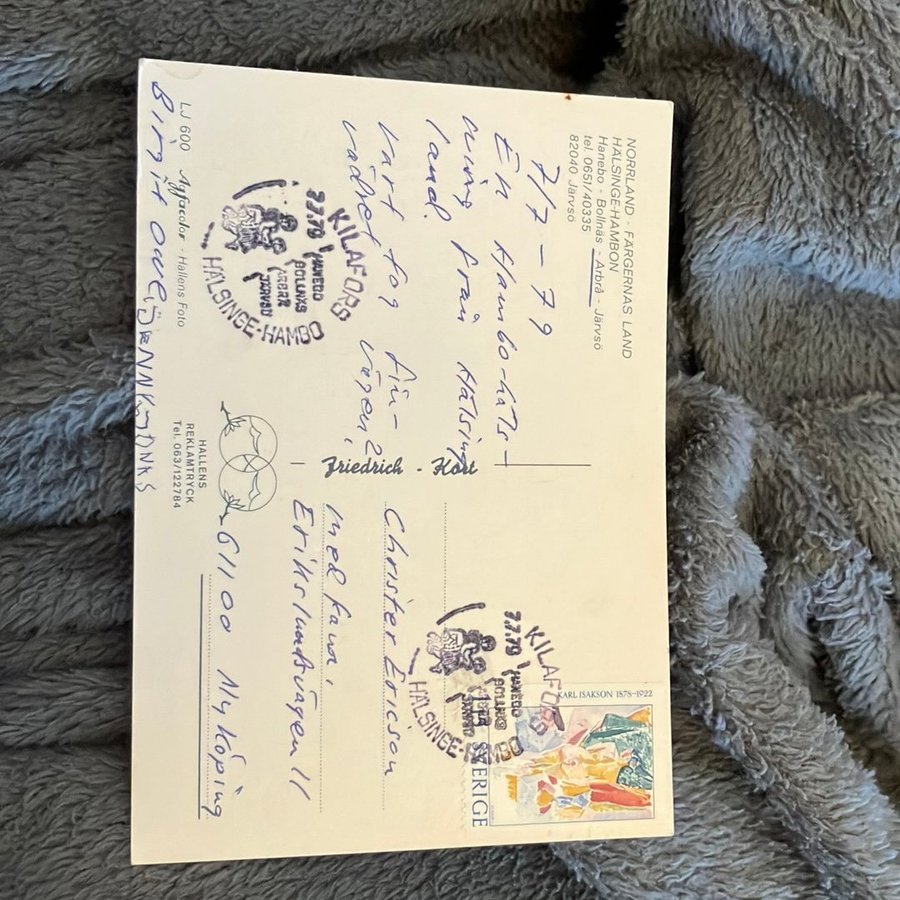 NORRLAND - FÄRGERNAS LAND
HÄLSINGE-HAMBON
Hanebo - Bollnäs - Arbrå - Järvsö
tel. 0651/40335
82040 Järvsö
7/7 - 79
En Hambo-häls-
ning från Hälsing
land.
Vart tog fin-
vädret vägen?
KILAFORS
7.7.79
HANEBO
BOLLNÄS
ARBRÅ
JÄRVSÖ
HÄLSINGE-HAMBO
LJ 600 Agfacolor - Hallens Foto
Birgit Ove,
Friedrich - Kort
HALLENS
REKLAMTRYCK
Tel. 063/122784
KARL ISAKSON 1878-1922
SVERIGE
KILAFORS
7.7.79
HANEBO
BOLLNÄS
ARBRÅ
JÄRVSÖ
HÄLSINGE-HAMBO
Christer Ericson
med fam.
Erikslundsvägen 11
61100 Nyköping